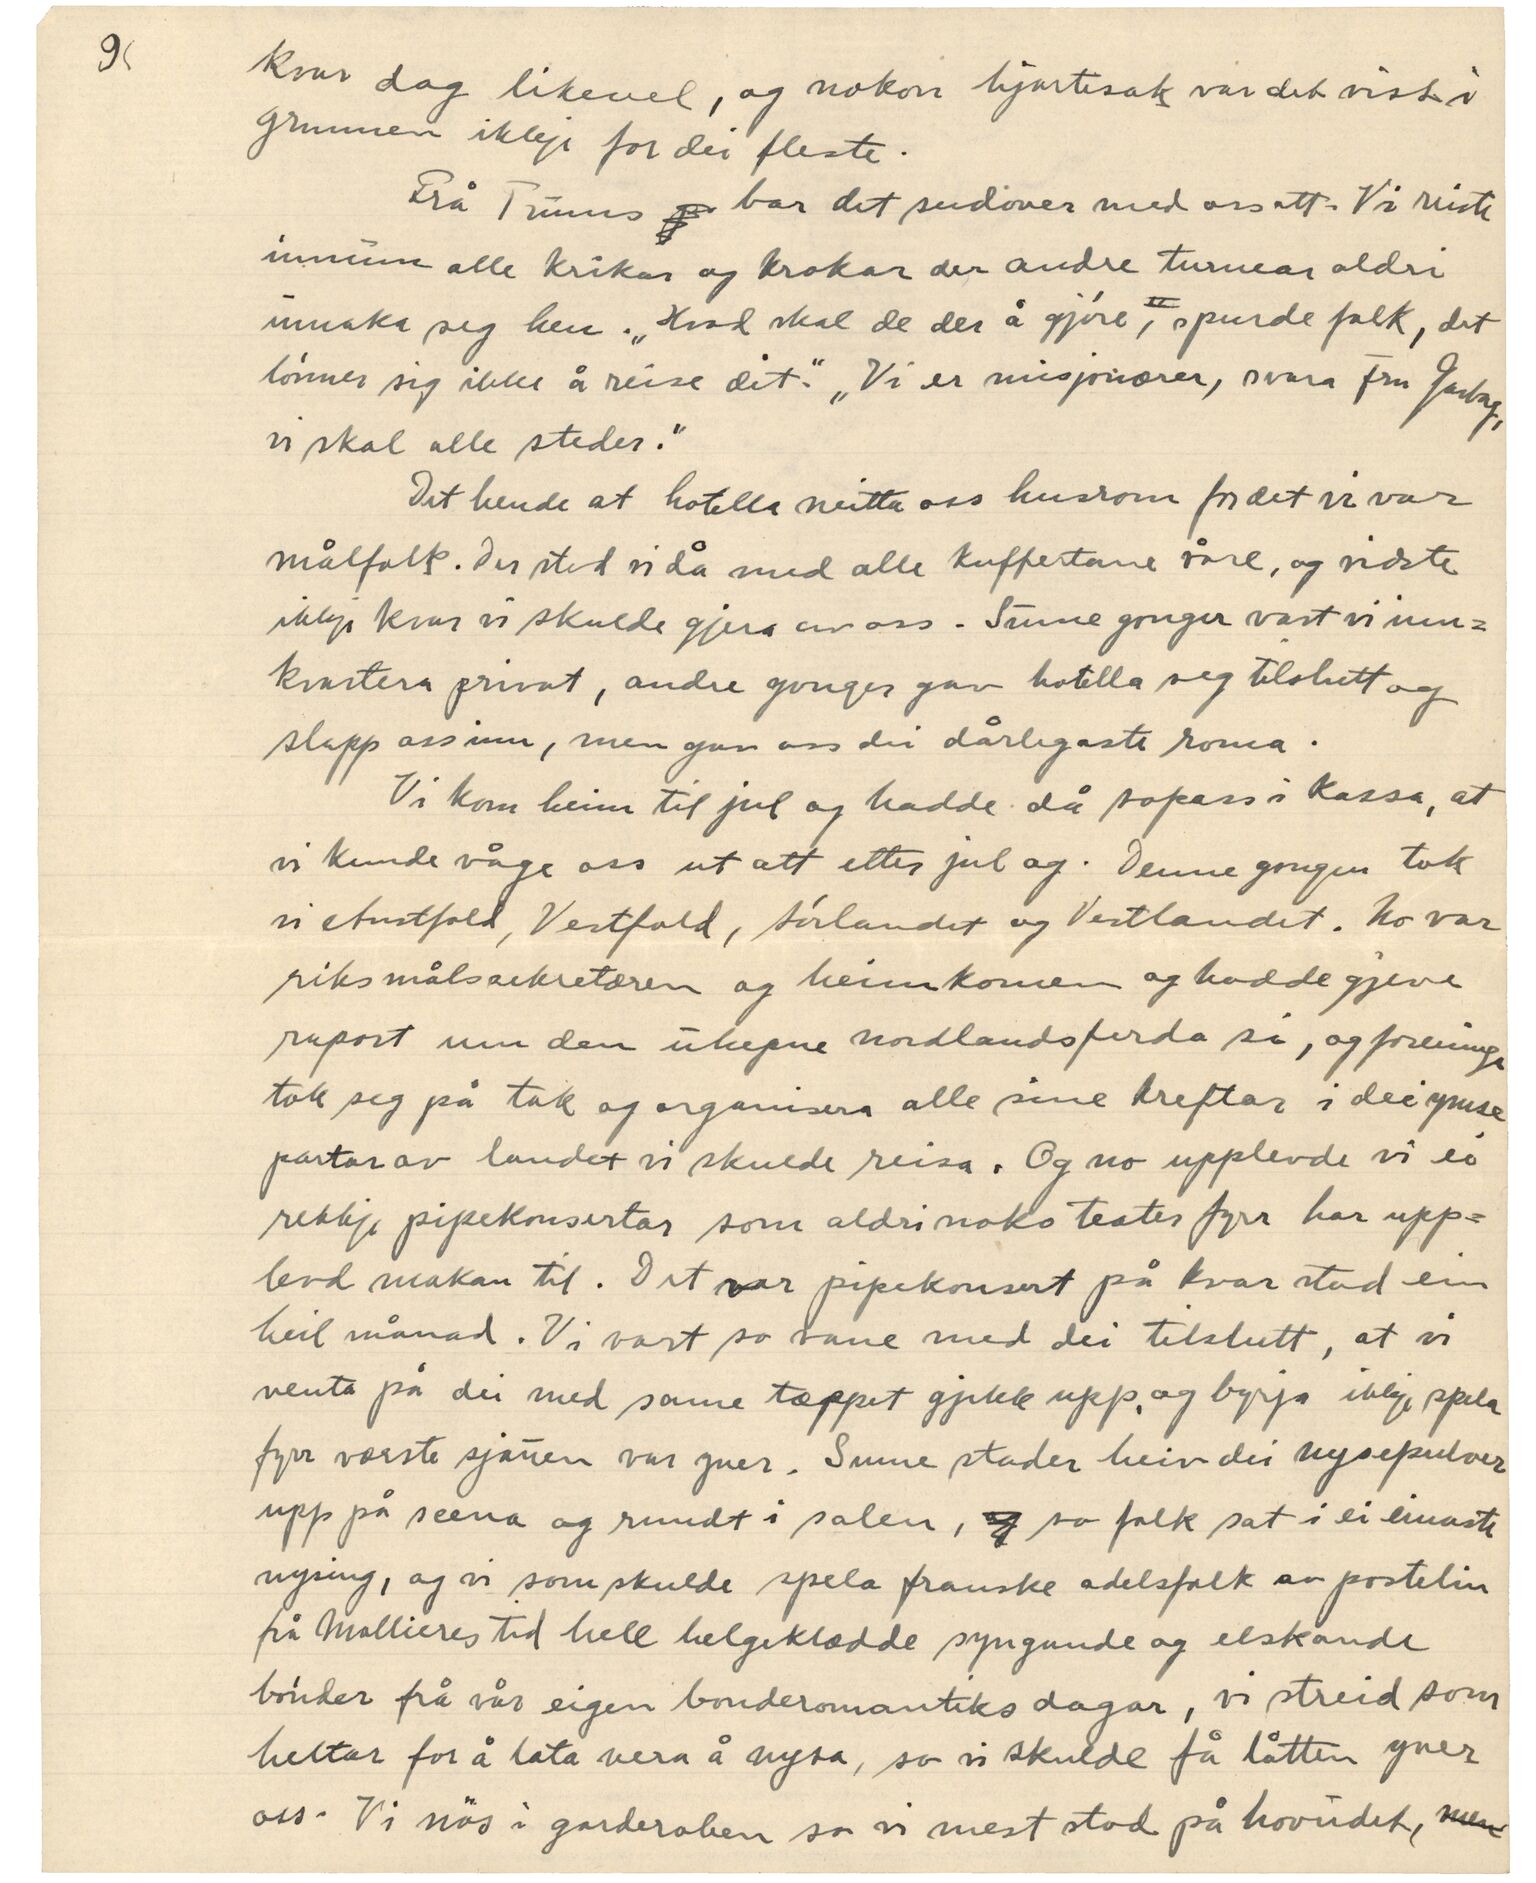 9
kvar dag likevel, og nokon hjartesak var det visst i
grunnen ikkje for dei fleste.
Frå Trums bar det sudover med oss att. Vi reiste
innum alle krikar og krokar der andre turnear aldri
umaka seg hen. „Hvad skal de der å gjöre," spurde folk, det
lönner sig ikke å reise dit." „Vi er misjonærer, svara fru Garborg,
vi skal alle steder."
Det hende at hotella neitta oss husrom fordet vi var
målfolk. Der stod vi då med alle kuffertane våre, og visste
ikkje kvar vi skulde gjera av oss. Sume gonger vart vi inn=
kvartera privat, andre gonger gav hotella seg tilslutt og
slapp oss inn, men gav oss dei dårlegaste roma.
Vi kom heim til jul og hadde då sopass i kassa, at
vi kunde våge oss ut att etter jul og. Denne gongen tok
vi Austfold, Vestfold, Sörlandet og Vestlandet. No var
riksmålssekretæren og heimkomen og hadde gjeve
raport um den uhepne nordlandsferda si, og foreninga
tok seg på tak og organisera alle sine kreftar i dei ymse
partar av landet vi skulde reisa. Og no upplevde vi ei
rekkje pipekonsertar som aldri noko teater fyrr har upp=
levd makan til. Det var pipekonsert på kvar stad ein
heil månad. Vi vart so vane med dei tilslutt, at vi
venta på dei med same tæppet gjekk upp, og byrja ikkje spela
fyrr verste sjauen var yver. Sume stader heiv dei nysepulver
upp på scena og rundt i salen, so folk sat i ei einaste
nysing, og vi som skulde spela franske adelsfolk av postelin
frå Mollieres tid hell helgeklædde syngande og elskande
bönder frå vår eigen bonderomantiks dagar, vi streid som
heltar for å lata vera å nysa, so vi skulde få låtten yver
oss. Vi nös i garderoben so vi mest stod på hovudet, men